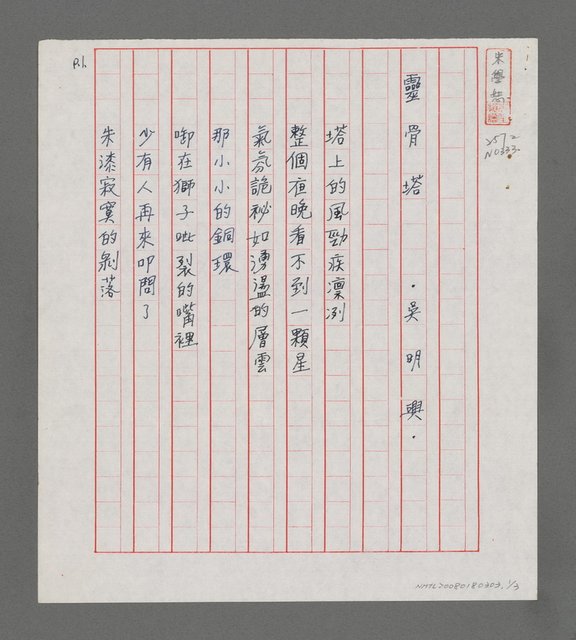 靈骨塔 ·吳明興·
塔上的風勁疾凜冽
整個夜晚看不到一顆星
氣氛詭祕如湧盪的層雲
那小小的銅環
啣在獅子呲裂的嘴裡
少有人再來叩問了
朱漆寂寞的剝落
P.1.
2572
N0333
NMTL20080180303, 1/3